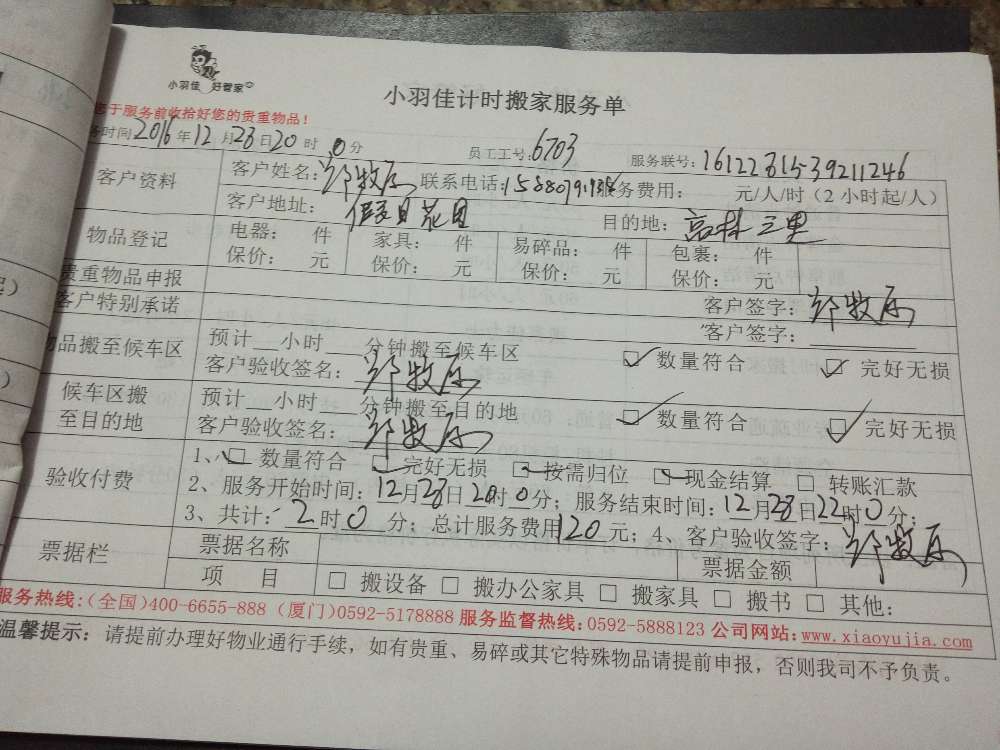 小羽佳 好管家
小羽佳计时搬家服务单
您于服务前收拾好您的贵重物品！
务时间2016年12月28日20时0分 员工工号：6703 服务联号：
客户资料
客户姓名： 联系电话： 服务费用： 元/人/时（2小时起/人）
客户地址：假日花园 目的地：高林三里
物品登记
电器： 件 家具： 件 易碎品： 件 包裹： 件
保价： 元 保价： 元 保价： 元 保价： 元
贵重物品申报 客户签字：
客户特别承诺 客户签字：
物品搬至候车区
预计__小时__分钟搬至候车区 ☑ 数量符合 ☑ 完好无损
客户验收签名：
候车区搬至目的地
预计__小时__分钟搬至目的地 ☑ 数量符合 ☑ 完好无损
客户验收签名：
验收付费
1、☑ 数量符合 ☑ 完好无损 ☑ 按需归位 ☑ 现金结算 □ 转账汇款
2、服务开始时间：12月28日20时0分；服务结束时间：12月28日22时0分；
3、共计：2时0分；总计服务费用120元；4、客户验收签字：
票据栏
票据名称 票据金额
项 目 □ 搬设备 □ 搬办公家具 □ 搬家具 □ 搬书 □ 其他：
服务热线：（全国）400-6655-888（厦门）0592-5178888 服务监督热线：0592-5888123 公司网站：www.xiaoyujia.com
温馨提示：请提前办理好物业通行手续，如有贵重、易碎或其它特殊物品请提前申报，否则我司不予负责。